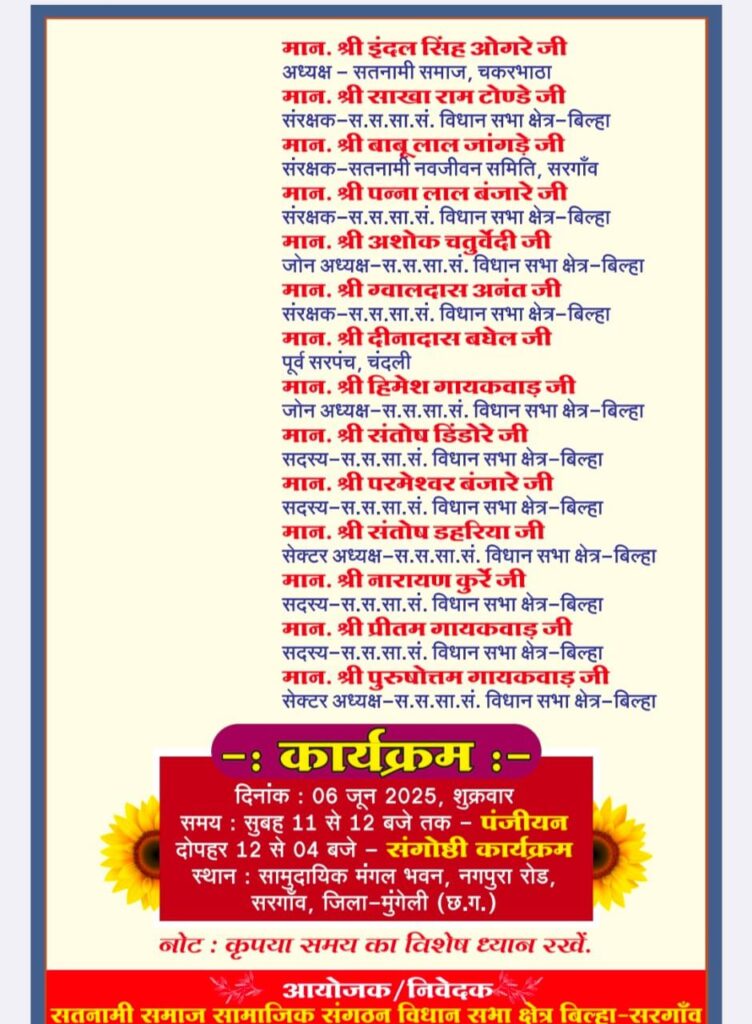 मान. श्री इंदल सिंह ओगरे जी
अध्यक्ष – सतनामी समाज, चकरभाठा
मान. श्री साखा राम टोण्डे जी
संरक्षक–स.स.सा.सं. विधान सभा क्षेत्र–बिल्हा
मान. श्री बाबू लाल जांगड़े जी
संरक्षक–सतनामी नवजीवन समिति, सरगाँव
मान. श्री पन्ना लाल बंजारे जी
संरक्षक–स.स.सा.सं. विधान सभा क्षेत्र–बिल्हा
मान. श्री अशोक चतुर्वेदी जी
जोन अध्यक्ष–स.स.सा.सं. विधान सभा क्षेत्र–बिल्हा
मान. श्री ग्वालदास अनंत जी
संरक्षक–स.स.सा.सं. विधान सभा क्षेत्र–बिल्हा
मान. श्री दीनादास बघेल जी
पूर्व सरपंच, चंदली
मान. श्री हिमेश गायकवाड़ जी
जोन अध्यक्ष–स.स.सा.सं. विधान सभा क्षेत्र–बिल्हा
मान. श्री संतोष डिंडोरे जी
सदस्य–स.स.सा.सं. विधान सभा क्षेत्र–बिल्हा
मान. श्री परमेश्वर बंजारे जी
सदस्य–स.स.सा.सं. विधान सभा क्षेत्र–बिल्हा
मान. श्री संतोष डहरिया जी
सेक्टर अध्यक्ष–स.स.सा.सं. विधान सभा क्षेत्र–बिल्हा
मान. श्री नारायण कुर्रे जी
सदस्य–स.स.सा.सं. विधान सभा क्षेत्र–बिल्हा
मान. श्री प्रीतम गायकवाड़ जी
सदस्य–स.स.सा.सं. विधान सभा क्षेत्र–बिल्हा
मान. श्री पुरुषोत्तम गायकवाड़ जी
सेक्टर अध्यक्ष–स.स.सा.सं. विधान सभा क्षेत्र–बिल्हा
–: कार्यक्रम :–
दिनांक : 06 जून 2025, शुक्रवार
समय : सुबह 11 से 12 बजे तक – पंजीयन
दोपहर 12 से 04 बजे – संगोष्ठी कार्यक्रम
स्थान : सामुदायिक मंगल भवन, नगपुरा रोड,
सरगाँव, जिला–मुंगेली (छ.ग.)
नोट : कृपया समय का विशेष ध्यान रखें.
आयोजक/निवेदक
सतनामी समाज सामाजिक संगठन विधान सभा क्षेत्र बिल्हा-सरगाँव